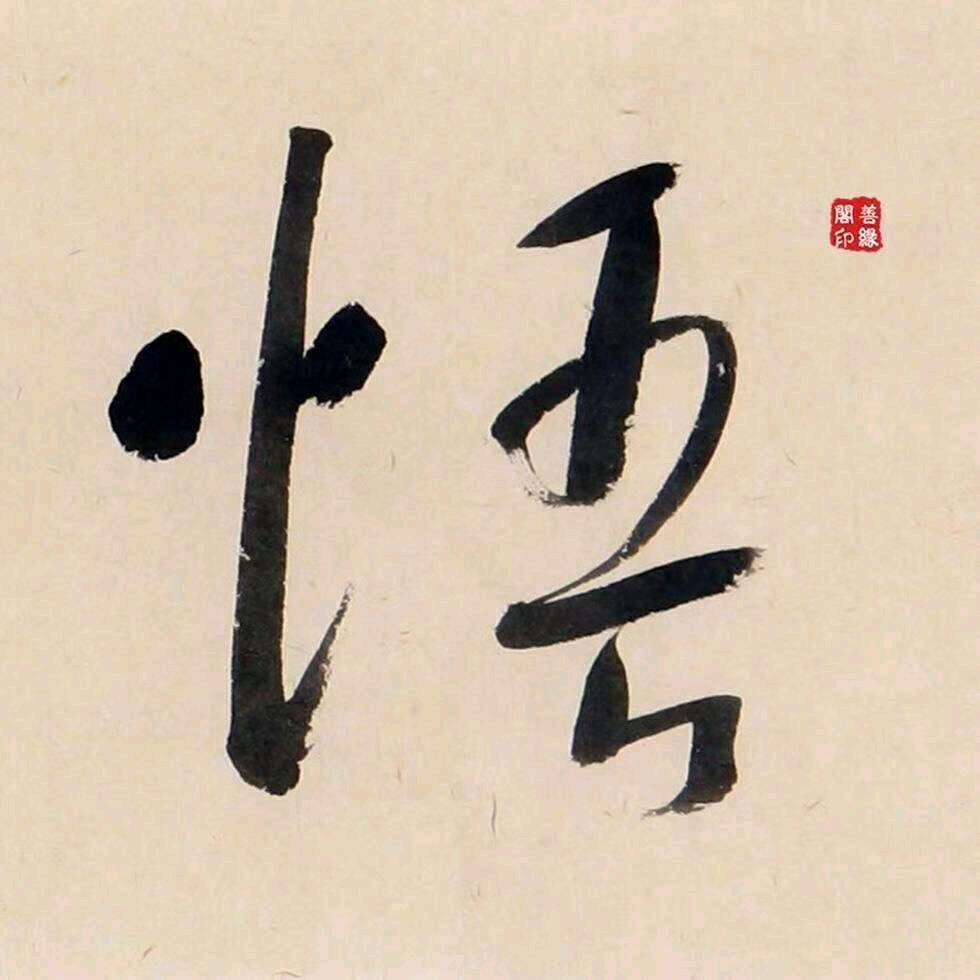 悟
善緣閣印